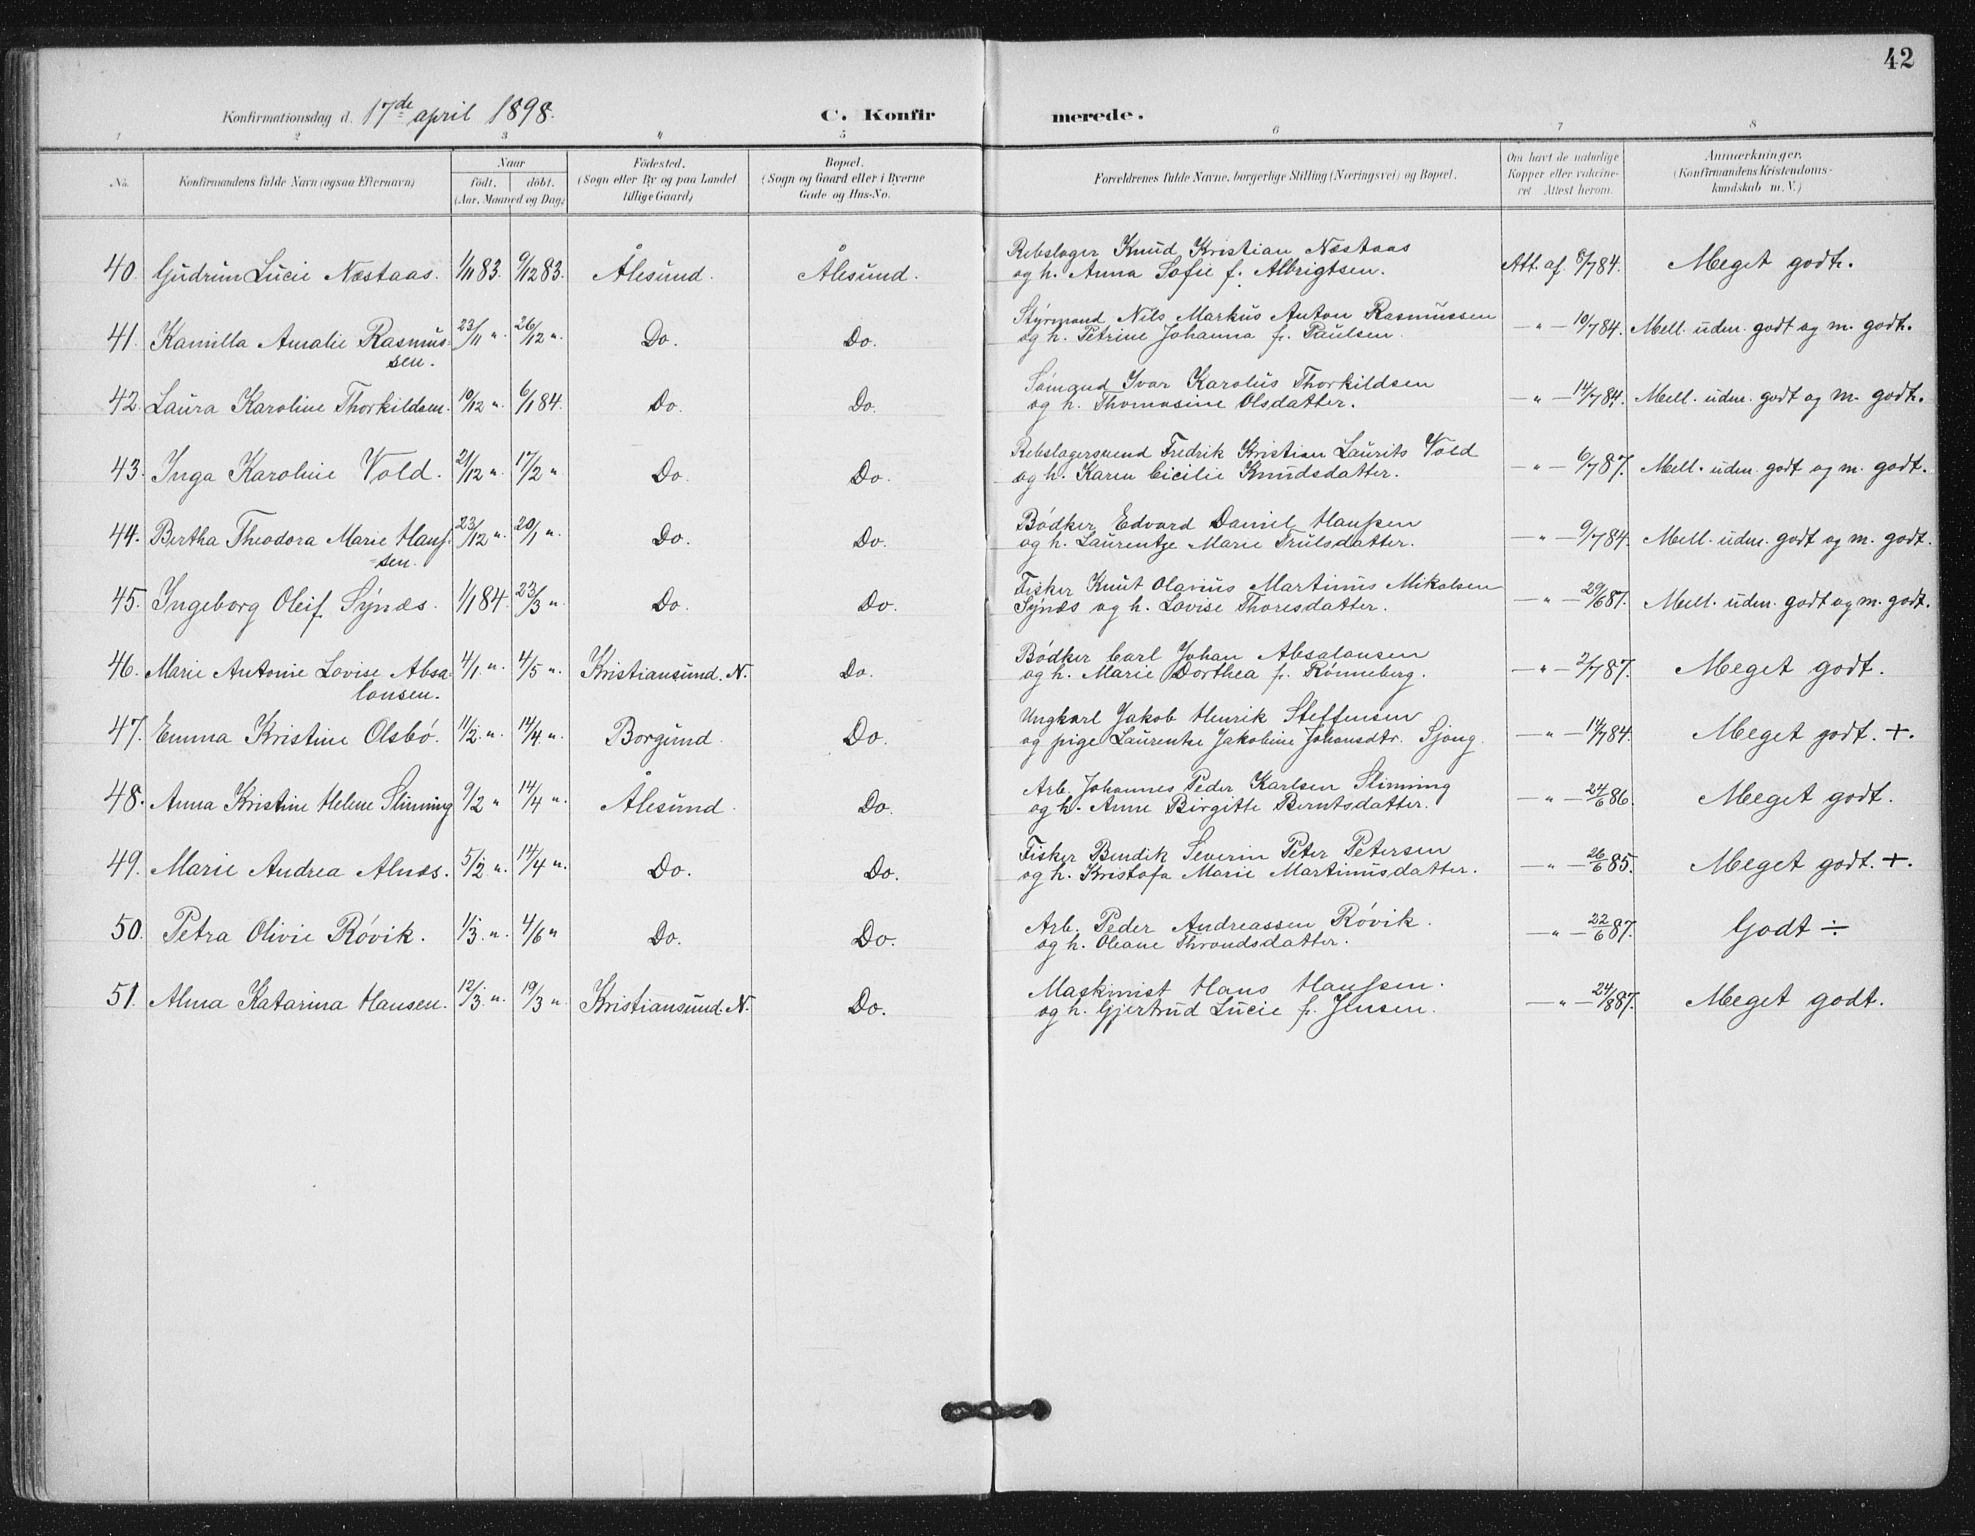 42
Konfirmationsdag d. 17de april 1898. C. Konfirmerede.
1 2 3 " 5 6 7 8
No. Konfirmandens fulde Navn (ogsaa Efternavn) Naar födt. döbt. (Aar, Maaned og Dag) Födested. (Sogn eller By og paa Landet tillige Gaard) Bopæl. (Sogn og Gaard eller i Byerne Gade og Hus-No. Forældrenes fulde Navne, borgerlige Stilling (Næringsvei) og Bopæl. Om havt de naturlige Kopper eller vakcineret Attest herom. Anmærkninger. (Konfirmandens Kristendomskundskab m. V.)
40. Gudrun Lucie Næstaas. 1/11 83. 9/12 83. Ålesund. Ålesund. Rebslager Knud Kristian Næstaas
og h. Anna Sofie f. Albrigtsen. Att. af 8/7 84. Meget godt.
41. Kamilla Amalie Rasmus- 23/11 " 26/12 ". Do. Do. Styrmand Nils Markus Anton Rasmussen
sen. og h. Petrine Johanna f. Paulsen. — " — 10/7 84. Mell. uden. godt og m. godt.
42. Laura Karoline Thorkildsen. 10/12 " 6/1 84. Do. Do. Sömand Ivar Karolus Thorkildsen
og h. Thomasine Olsdatter. — " — 14/7 84. Mell. uden. godt og m. godt.
43. Inga Karoline Vold. 21/12 " 17/2 " Do. Do. Rebslagersvend Fredrik Kristian Laurits Vold
og h. Karen Cicilie Knudsdatter. — " — 6/7 87. Mell. uden. godt og m. godt.
44. Bertha Theodora Marie Hans- 23/12 " 20/1 ". Do. Do. Bödker Edvard Daniel Hanssen
sen. og h. Laurentze Marie Trulsdatter. — " — 9/7 84. Mell. uden. godt og m. godt.
45. Ingeborg Oleif Synæs. 1/1 84. 23/3 " Do. Do. Fisker Knut Olavius Martinus Mikalsen
Synæs og h. Lovise Thoresdatter. — " — 29/6 87. Mell. uden. godt og m. godt.
46. Marie Antonie Lovise Absa- 4/1. " 4/5 ". Kristiansund. N. Do. Bödker Carl Johan Absalonsen
lonsen. og h. Marie Dorthea f. Rönneberg. — " — 2/7 87. Meget godt.
47. Emma Kristine Olsbö. 11/2. " 14/4. " Borgund. Do. Ungkarl Jakob Henrik Steffensen
og pige Laurentze Jakobine Johansdtr. Sjong. — " — 14/7 84. Meget godt. +.
48. Anna Kristine Helene Slinning 9/2 " 14/4 ". Ålesund. Do. Arb. Johannes Peder Karlsen Slinning
og h. Anne Birgitte Berntsdatter. — " — 24/6 86. Meget godt.
49. Marie Andrea Alnæs. 5/2 ". 14/4 ". Do. Do. Fisker Bendik Severin Peter Petersen
og h. Kristofa Marie Martinusdatter. — " — 26/6 85. Meget godt. +.
50. Petra Olivie Rövik. 1/3. ". 4/6 " Do. Do. Arb. Peder Andreassen Rövik.
og h. Oleane Throndsdatter. — " — 22/6 87. Godt ÷
51. Alma Katarina Hansen. 12/3. ". 19/3 " Kristiansund. N. Do. Maskinist Hans Hanssen.
og h. Gjertrud Lucie f. Jensen. — " — 24/8 87. Meget godt.